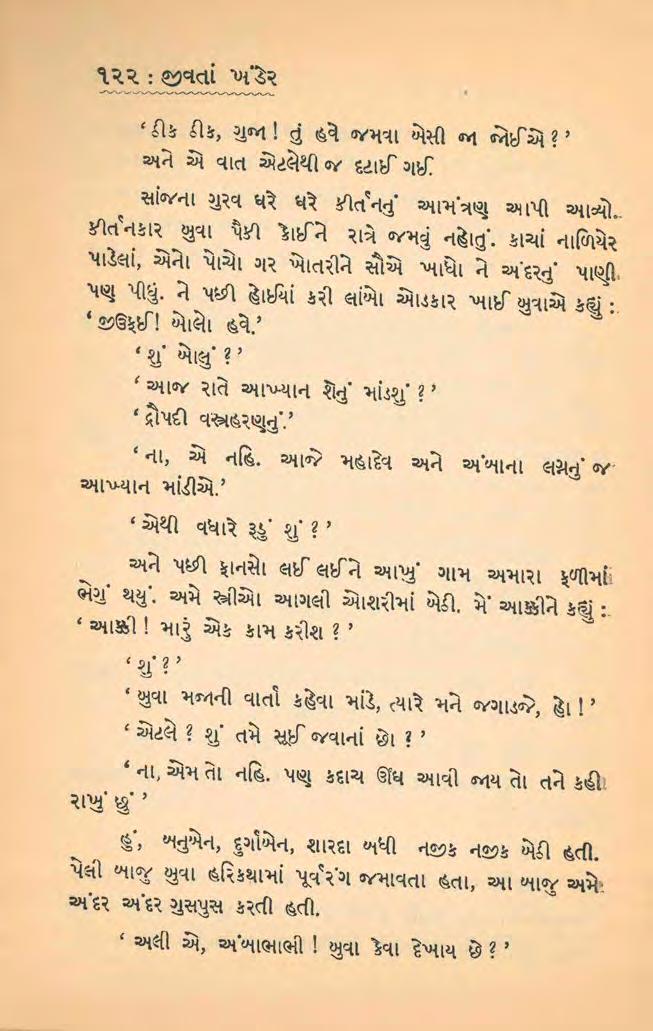 ૧૨૨ : જીવતાં ખંડેર
‘ઠીક ઠીક, ગુજા! તું હવે જમવા બેસી જા જોઈએ?’
અને એ વાત એટલેથી જ દટાઈ ગઈ.
સાંજના ગુરવ ઘરે ઘરે કીર્તનનું આમંત્રણ આપી આવ્યો.
કીર્તનકાર બુવા પૈકી કોઈને રાત્રે જમવું નહોતું. કાચાં નાળિયેર
પાડેલાં, એનો પોચો ગર ખોતરીને સૌએ ખાધો ને અંદરનું પાણી
પણ પીધું. ને પછી હોઈયાં કરી લાંબો ઓડકાર ખાઈ બુવાએ કહ્યું :
‘જીઉફઈ! બોલો હવે.’
‘શું બોલું ?’
‘આજ રાતે આખ્યાન શેનું માંડશું ?’
‘દ્રૌપદી વસ્ત્રહરણનું.’
‘ના, એ નહિ. આજે મહાદેવ અને અંબાના લગ્નનું જ
આખ્યાન માંડીએ.’
‘એથી વધારે રૂડું શું ?’
અને પછી ફાનસો લઈ લઈને આખું ગામ અમારા ફળીમાં
ભેગું થયું. અમે સ્ત્રીઓ આગલી ઓશરીમાં બેઠી. મેં આક્કીને કહ્યું :
‘આક્કી ! મારું એક કામ કરીશ ?’
‘શું ?’
‘બુવા મજાની વાર્તા કહેવા માંડે, ત્યારે મને જગાડજે, હો !’
‘એટલે ? શું તમે સૂઈ જવાનાં છો ?’
‘ના, એમ તો નહિ. પણ કદાચ ઊંઘ આવી જાય તો તને કહી
રાખું છું ’
હું, બનુબેન, દુર્ગાબેન, શારદા બધી નજીક નજીક બેઠી હતી.
પેલી બાજુ બુવા હરિકથામાં પૂર્વરંગ જમાવતા હતા, આ બાજુ અમે
અંદર અંદર ગુસપુસ કરતી હતી.
‘અલી એ, અંબાભાભી ! બુવા કેવા દેખાય છે ?’